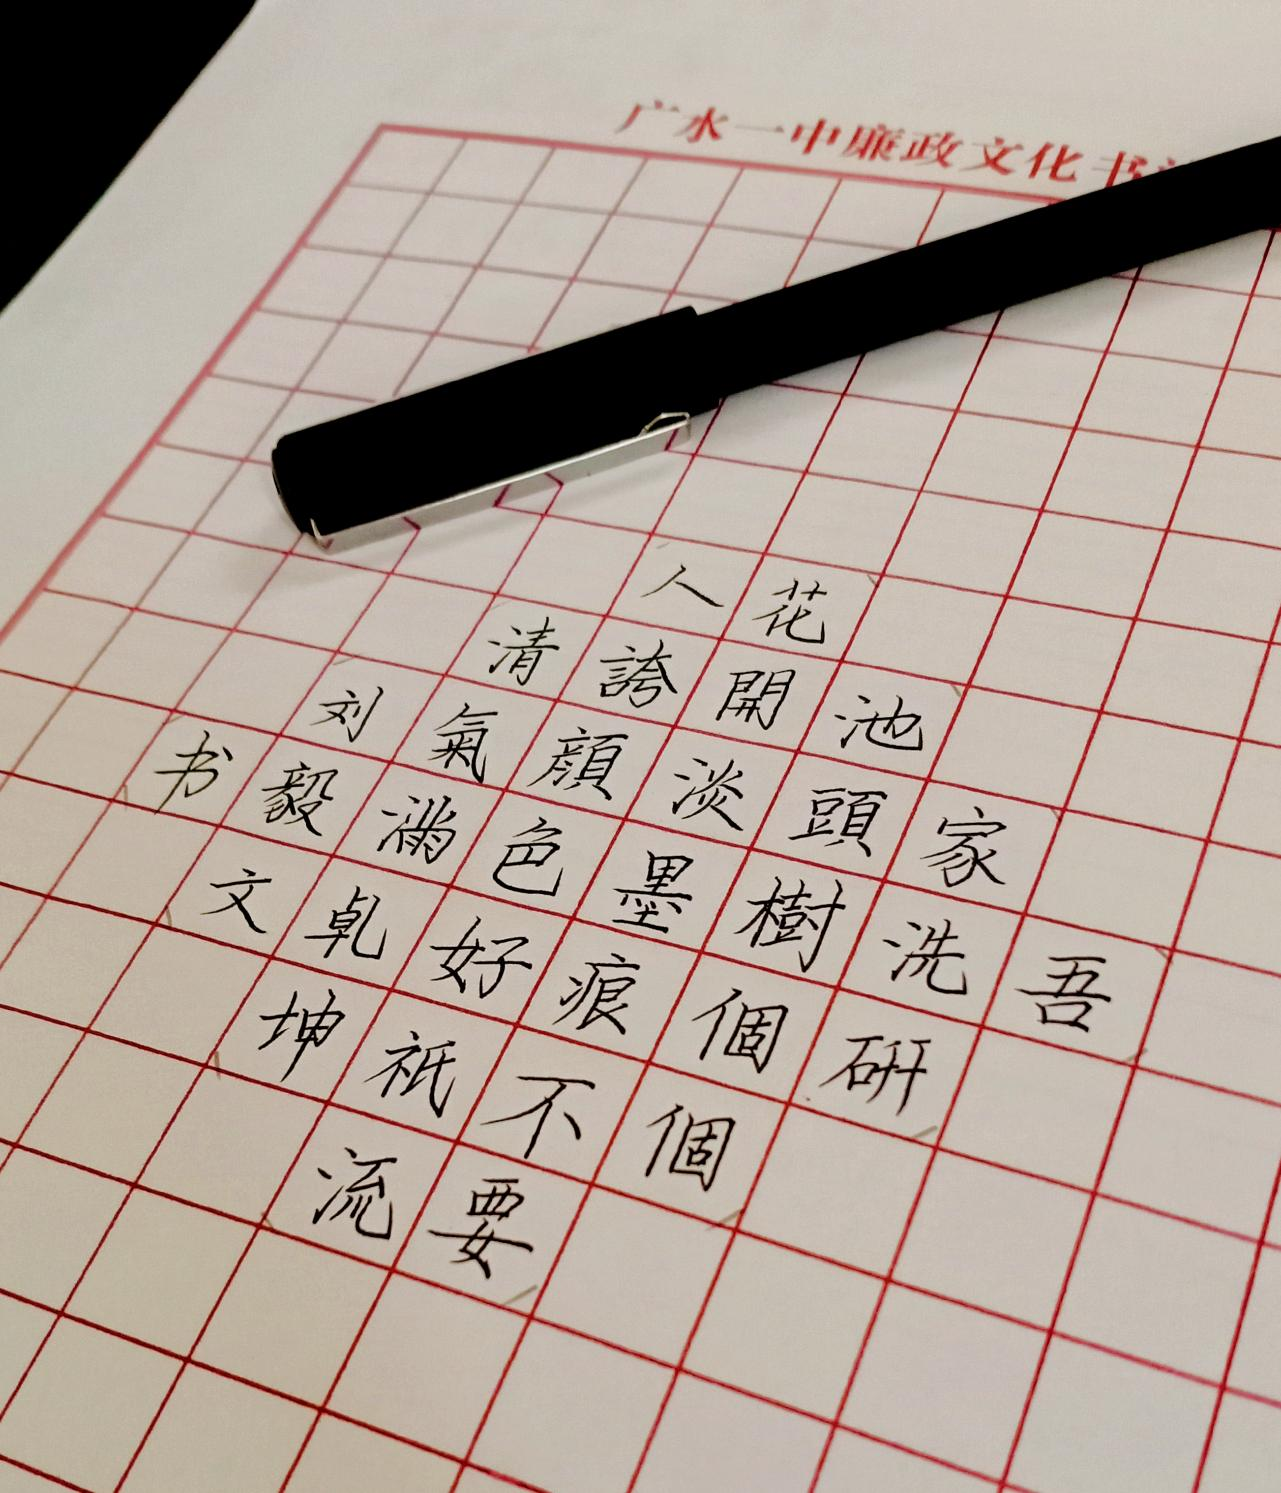 广水一中廉政文化书
吾
家洗研
池頭樹個個
花開淡墨痕不要
人誇顔色好祇流
清氣滿乾坤
刘毅文
书